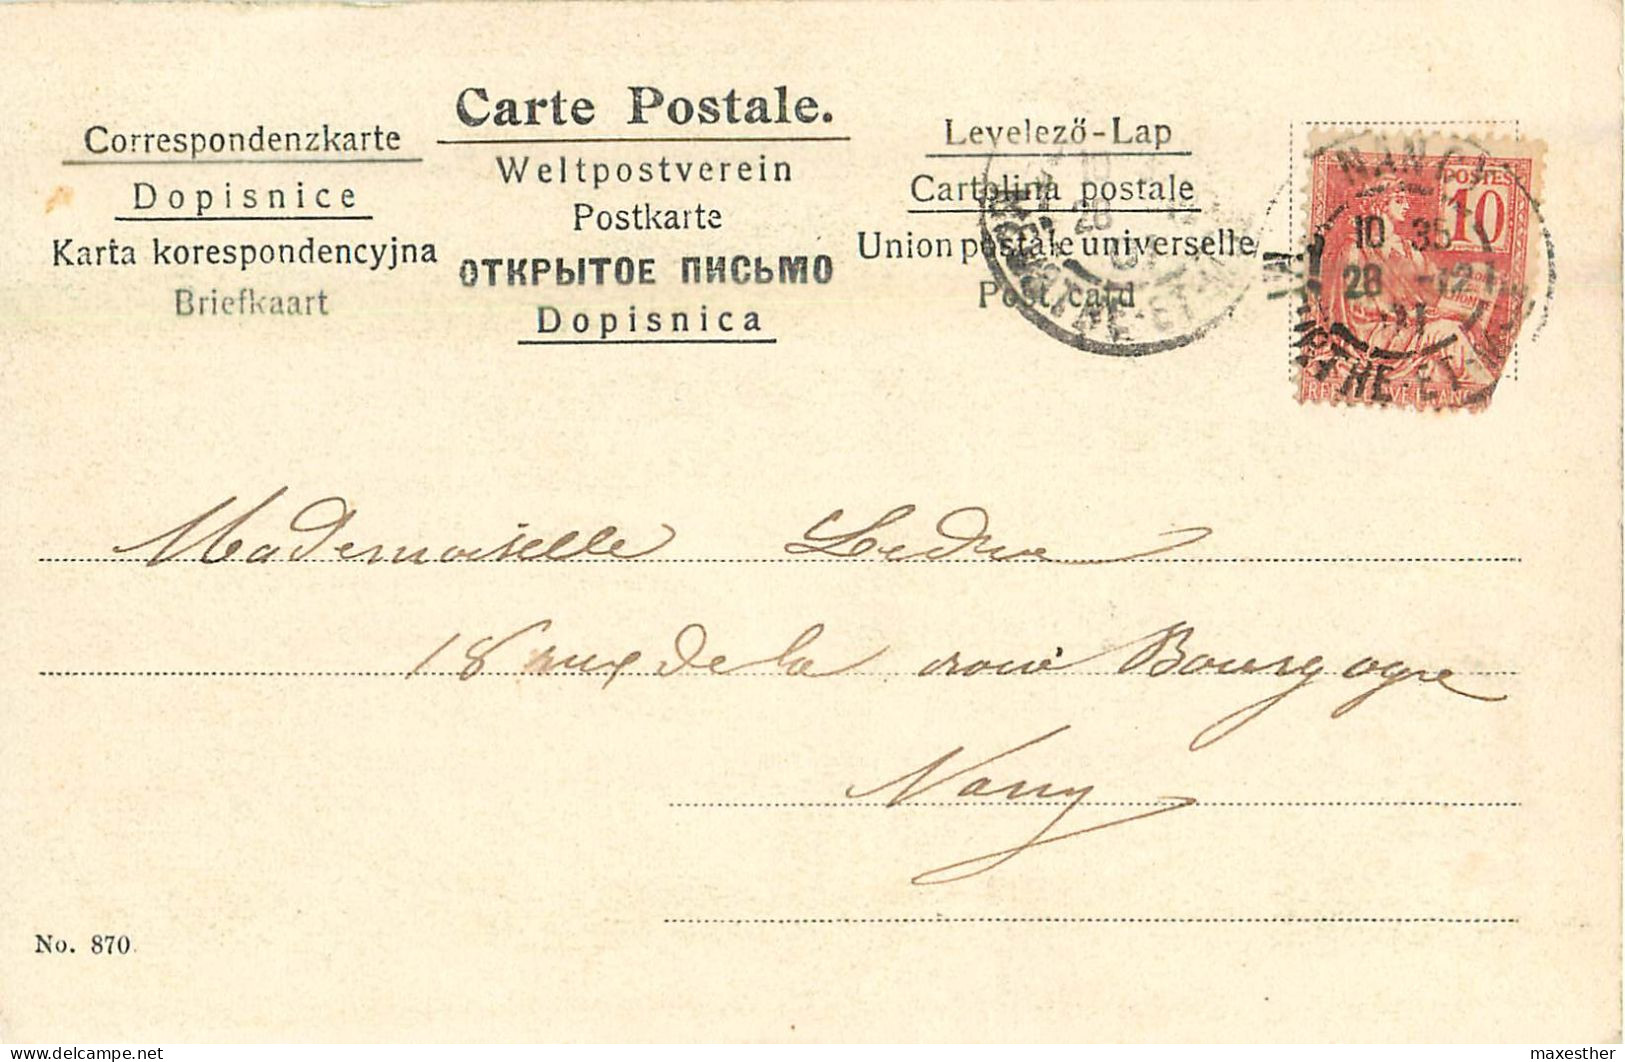 Carte Postale.
Correspondenzkarte
Dopisnice
Karta korespondencyjna
Briefkaart
Weltpostverein
Postkarte
ОТКРЫТОЕ ПИСЬМО
Dopisnica
Levelező-Lap
Cartolina postale
Union postale universelle
Post card
NANCY
10 35
28 -12
01
MURTHE-ET-M
POSTES
10
28
Mademoiselle Leduc
18 rue de la croix Bourgogne
Nancy
No. 870
maxesther